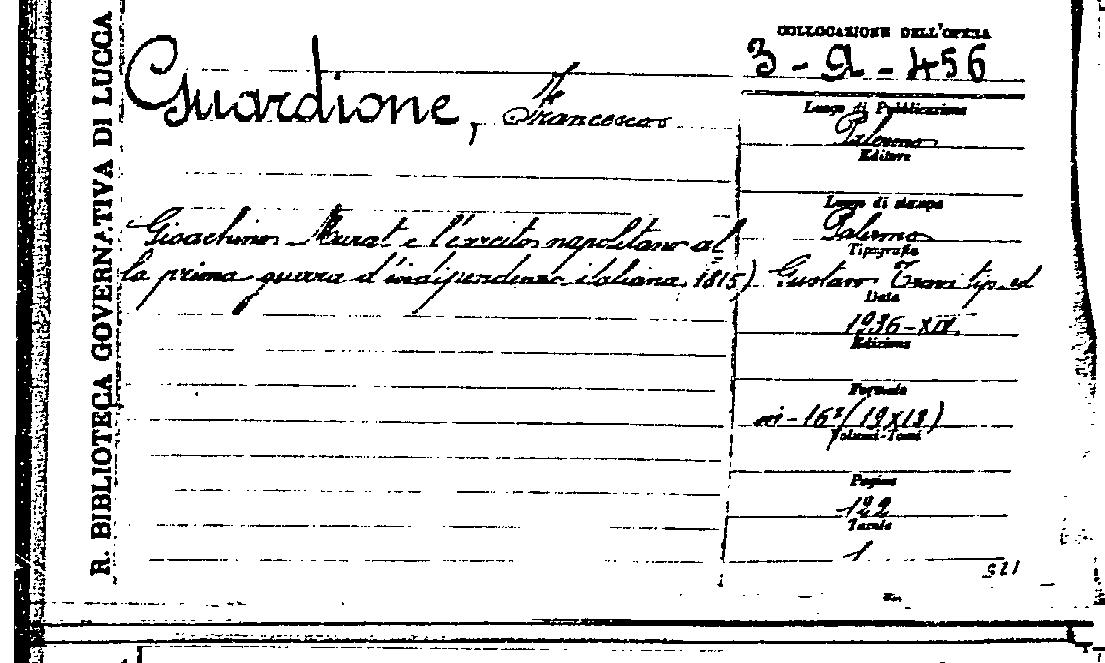 R. BIBLIOTECA GOVERNATIVA DI LUCCA
Guardione, Francesco
Gioachino Murat e l'esercito napolitano al
la prima guerra d'indipendenza italiana 1815)
COLLOCAZIONE DELL'OPERA
3 - Q - 456
Luogo di Pubblicazione
Palermo
Editore
Luogo di stampa
Palermo
Tipografia
Gustavo tip. ed
Data
1936-XIV.
Edizione
Formato
in-16º (19x13)
Volumi-Tomi
Pagine
122
Tavole
1